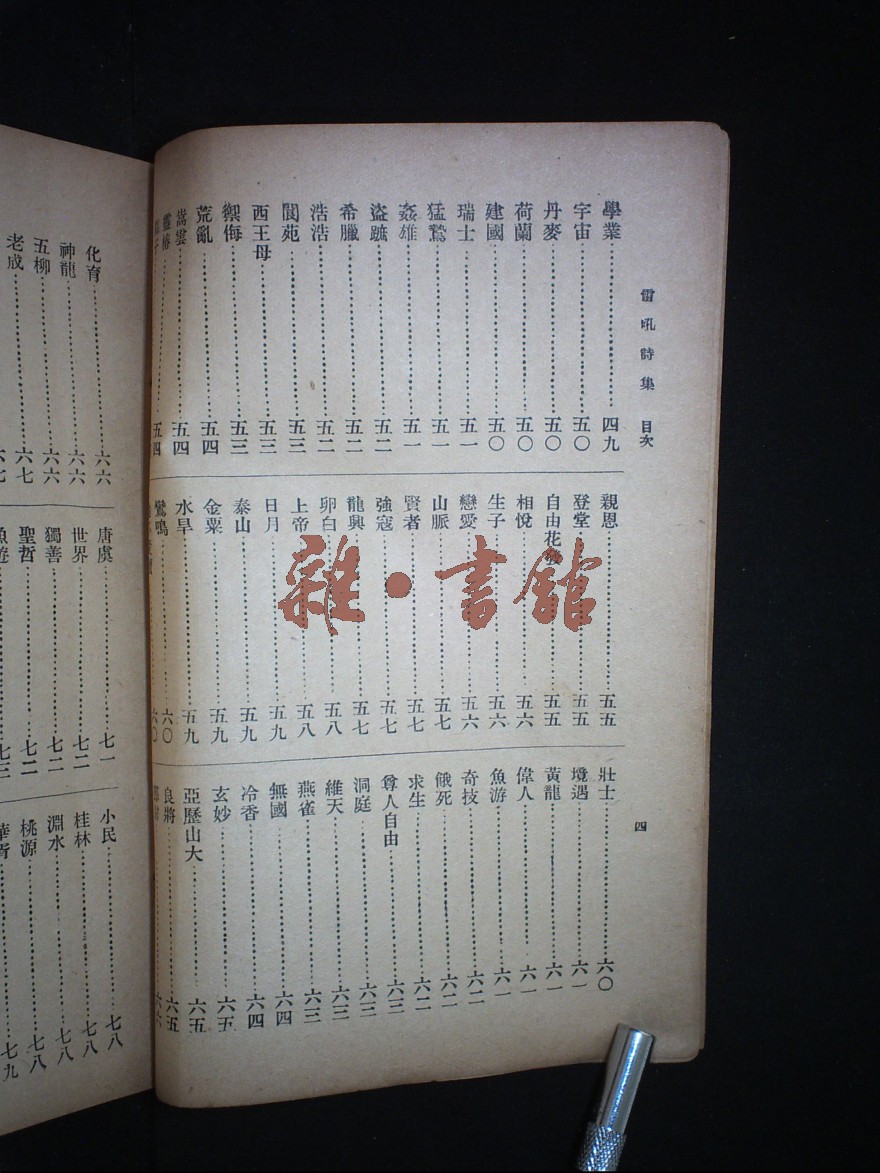 雷吼詩集 目次
學業 四九
宇宙 五〇
丹麥 五〇
荷蘭 五〇
建國 五〇
瑞士 五一
猛鷙 五一
姦雄 五一
盜蹠 五二
希臘 五二
浩浩 五二
閬苑 五三
西王母 五三
禦侮 五三
荒亂 五四
嵩雲 五四
靈椿
五四
親恩 五五
登堂 五五
自由花發 五五
相悅 五六
生子 五六
戀愛 五六
山脈 五七
賢者 五七
強寇 五七
龍興 五七
卵白 五八
上帝 五八
日月 五九
泰山 五九
金粟 五九
水旱 五九
鸞鳴 六〇
六〇
壯士 六〇
境遇 六一
黃龍 六一
偉人 六一
魚游 六一
奇技 六二
餓死 六二
求生 六二
尊人自由 六三
洞庭 六三
維天 六三
燕雀 六三
無國 六四
冷香 六四
玄妙 六五
亞歷山大 六五
良將 六五
六六
四
化育 六六
神龍 六六
五柳 六六
老成 六七
六七
唐虞 七一
世界 七二
獨善 七二
聖哲 七二
魚遊 七三
小民 七八
桂林 七八
淵水 七八
桃源 七八
華胥 七九
雜·書館